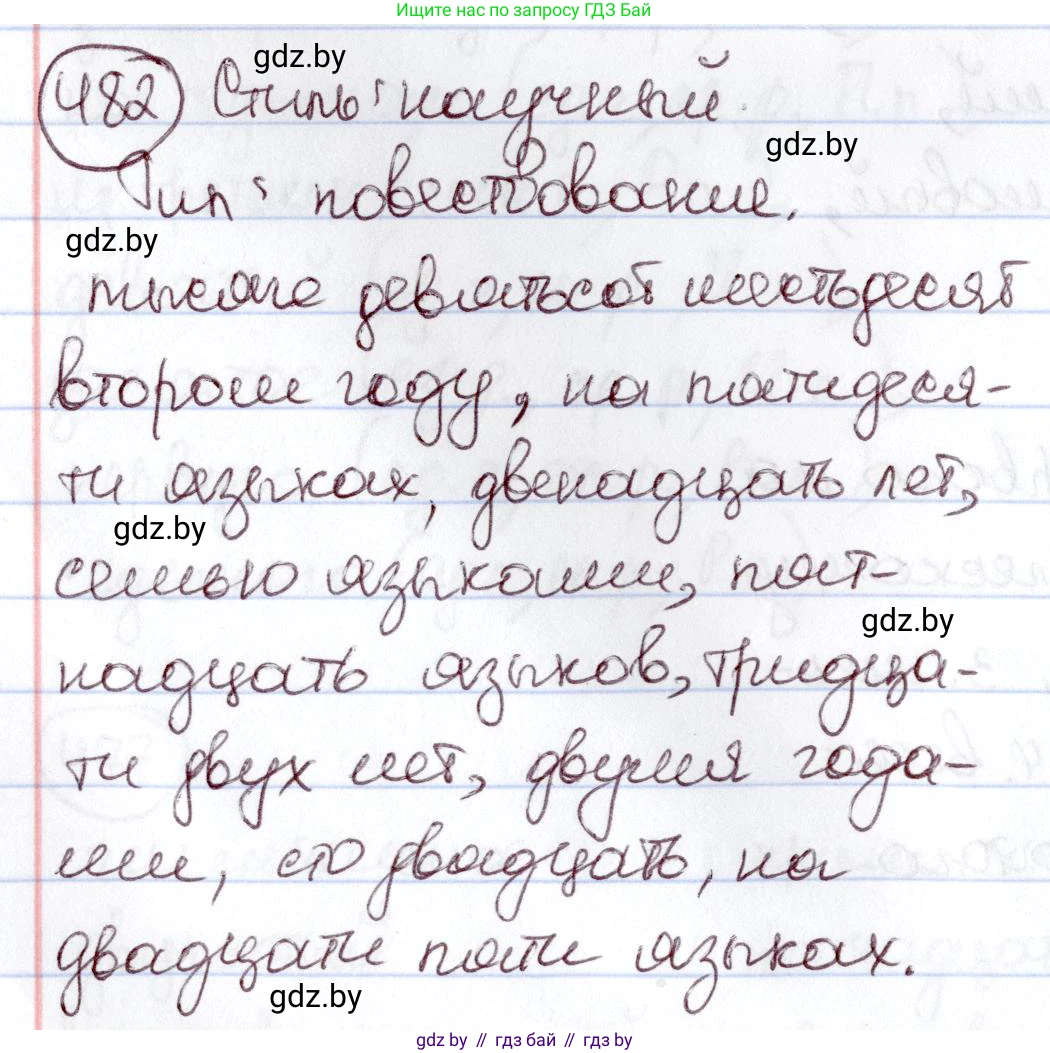 Ищите нас по запросу ГДЗ Бай
gdz.by
482 Стиль: научный.
gdz.by
Тип: повествование.
gdz.by
тысяча девятьсот шестьдесят
втором году, на пятидеся-
ти языках, двенадцать лет,
gdz.by
семью языками, пят-
gdz.by
надцать языков, тридца-
ти двух лет, двумя года-
ми, сто двадцать, на
двадцати пяти языках.
gdz.by
gdz.by // гдз бай // гдз.by